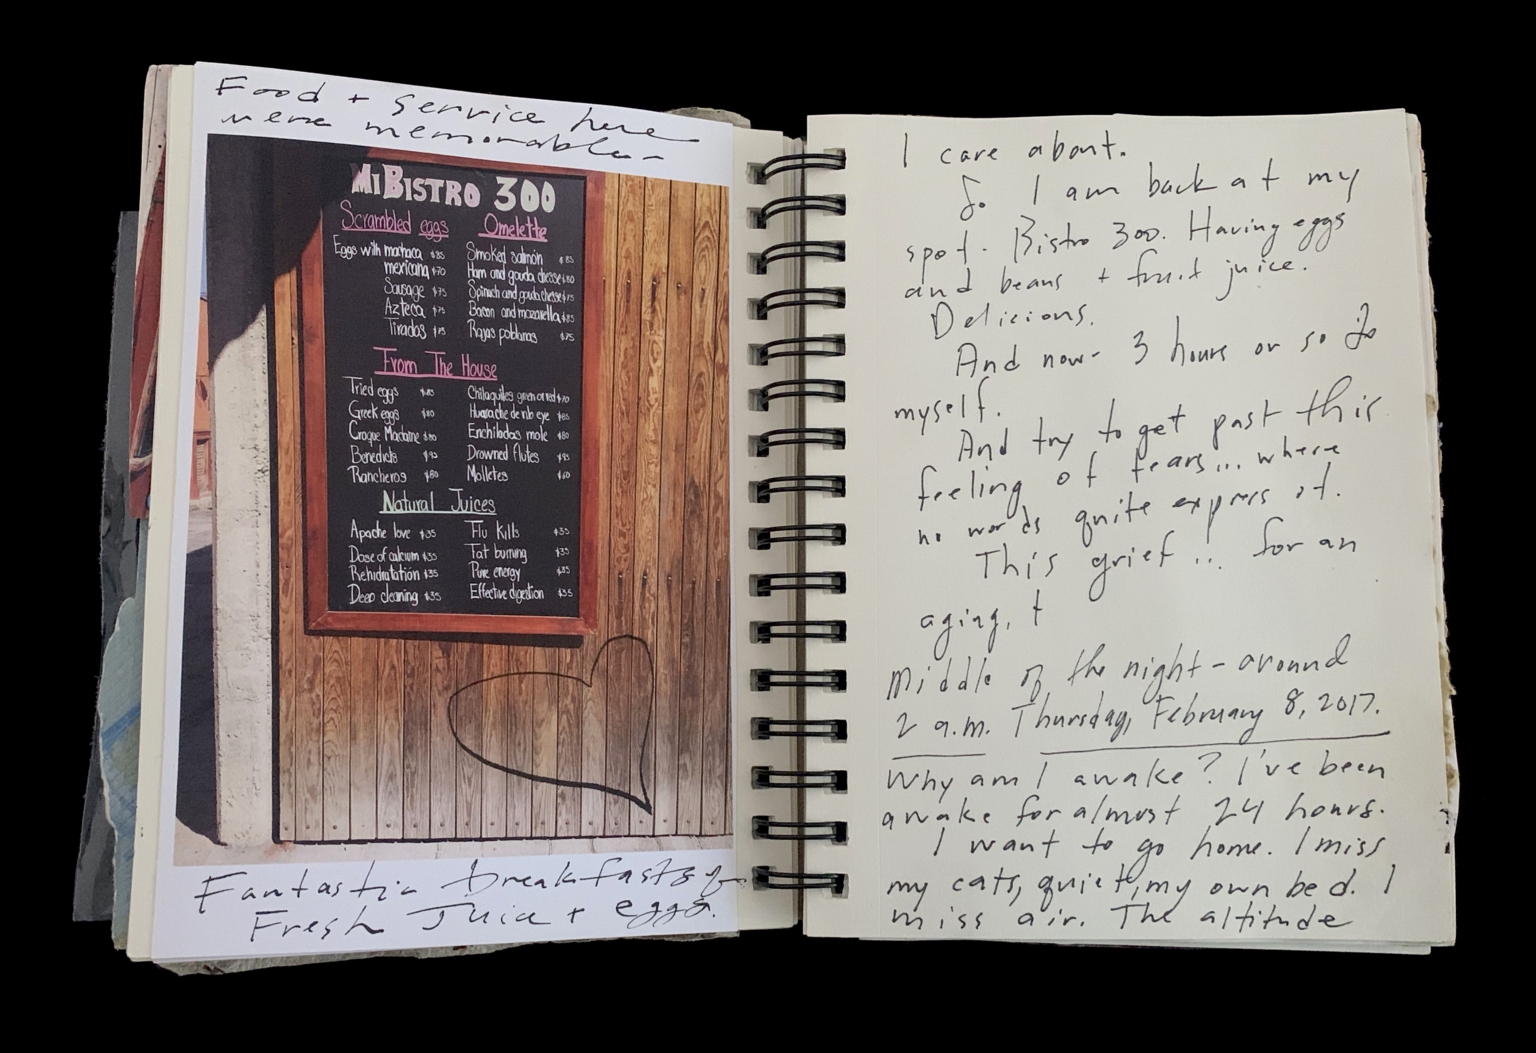 Food + service here
were memorable-
MI BISTRO 300
Scrambled eggs
Eggs with machaca $85
mexicana $70
Sausage $75
Azteca $75
Tirados $75
Omelette
Smoked salmon $85
Ham and gouda chesse $80
Spinach and gouda chesse $75
Bacon and mozarella $85
Rajas poblanas $75
From The House
Tried eggs $85
Greek eggs $80
Croque Madame $80
Benedicts $95
Rancheros $80
Chilaquiles green or red $70
Huarache de rib eye $85
Enchiladas mole $80
Drowned flutes $95
Molletes $60
Natural Juices
Apache love $35
Dose of calcium $35
Rehidratation $35
Deep cleaning $35
Flu Kills $35
Fat burning $35
Pure energy $35
Effective digestion $35
Fantastic breakfasts of
Fresh Juice + eggs.
I care about.
So I am back at my
spot. Bistro 300. Having eggs
and beans + fruit juice.
Delicious.
And now- 3 hours or so to
myself.
And try to get past this
feeling of tears... where
no words quite express it.
This grief... for an
aging, t
Middle of the night - around
2 a.m. Thursday, February 8, 2017.
Why am I awake? I've been
awake for almost 24 hours.
I want to go home. I miss
my cats, quiet, my own bed. I
miss air. The altitude